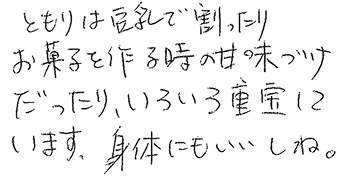 ともりは豆乳で割ったり
お菓子を作る時の甘味づけ
だったり、いろいろ重宝して
います。身体にもいいしね。